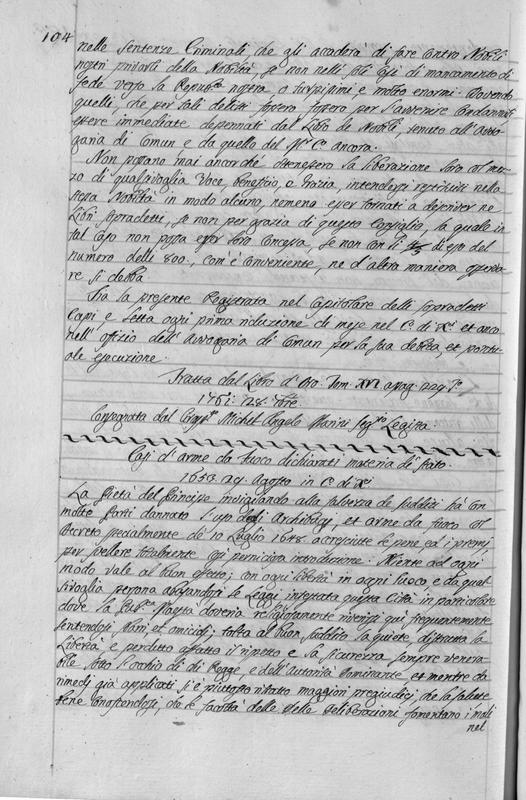 104
nelle sentenze Criminali che gli accaderà di fare contro Nobili
nostri privarli della Nobiltà, se non nelli soli Casi di mancamento di
fede verso la Repub.ca nostra, o turpissimi e molto enormi. Dovendo
quelli, che per tali delitti fossero per l'avvenire Condannati
essere immediate depennati dal Libro de Nobili, tenuto all'Avo-
garia di Comun e da quello del M.r C.o ancora.
Non possano mai ancorché ottenessero la liberazione loro col me-
zo di qualsivoglia Voce, beneficio, o Grazia, intendersi restituiti nella
stessa Nobiltà in modo alcuno, nemeno esser tornati a descriver ne
Libri sopradetti, se non per grazia di questo Consiglio, la quale in
tal caso non possa esser loro concessa, se non con li di esso del
numero delli 800, com'è conveniente, ne d'altra maniera opera-
re si debba
Sia la presente Registrata nel Capitolare delli sopradetti
Capi, e Letta ogni prima riduzione di mese nel C. di X.ci et anco
nell'offizio dell'Avogaria di Comun per la sua debita, et pontu-
ale esecuzione.
Tratta dal Libro d'Oro Tom. XVI a pag.
1761: 28. 
Consegnata dal Michel Angelo Marini seg.rio Legista
Casi d'arme da fuoco dichiarati materia di stato.
1653. 29. Agosto in C. di X.ci
La Pietà del Principe invigilando alla salvezza de sudditi hà con
molte Parti dannato l'uso degl'Archibugi, et arme da fuoco col
Decreto specialmente di 10 Luglio 1648 accresciute le pene ed i premj,
per svellere totalmente così perniciosa introduzione. Niente ad ogni
modo vale al buon effetto; con ogni libertà in ogni luoco, e da qual
sivoglia persona abusandosi le Leggi, infestata questa Città in particolare
dove la Pub.ca Maestà doveria religiosamente riverirsi qui frequentemente
sentendosi omicidj; tolta al buon suddito la quiete distrutta la
Libertà e perduto affatto il rispetto e la sicurezza sempre venera-
bile sotto l'occhio di chi Regge, e dell'autorità Dominante et mentre da
rimedj già applicati si è piuttosto ritratto maggiori pregiudicj, che la salute
bene conoscendosi, che le facoltà delle stesse deliberazioni fomentano i mali
nel